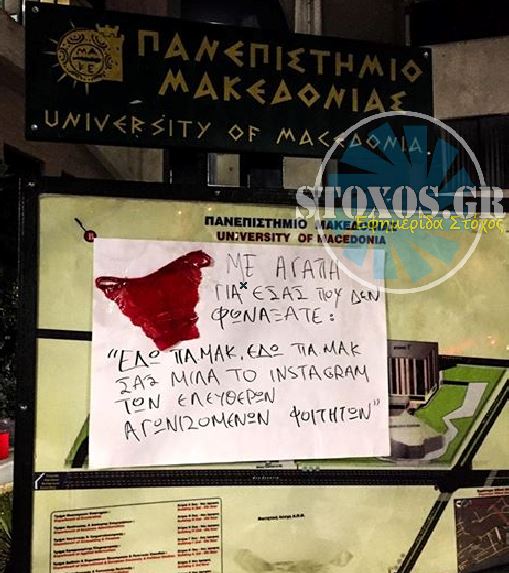 ΠΑΝΕΠΙΣΤΗΜΙΟ
ΜΑΚΕΔΟΝΙΑΣ
UNIVERSITY OF MACEDONIA.
STOXOS.GR
Εφημερίδα Στόχος
ΠΑΝΕΠΙΣΤΗΜΙΟ ΜΑΚΕΔΟΝΙΑΣ
UNIVERSITY OF MACEDONIA
ΜΕ ΑΓΑΠΗ
ΓΙΑ ΕΣΑΣ ΠΟΥ ΔΕΝ
ΦΩΝΑΞΑΤΕ:
"ΕΔΩ ΠΑΜΑΚ, ΕΔΩ ΠΑ.ΜΑΚ
ΣΑΣ ΜΙΛΑ ΤΟ INSTAGRAM
ΤΩΝ ΕΛΕΥΘΕΡΩΝ
ΑΓΩΝΙΖΟΜΕΝΩΝ ΦΟΙΤΗΤΩΝ"